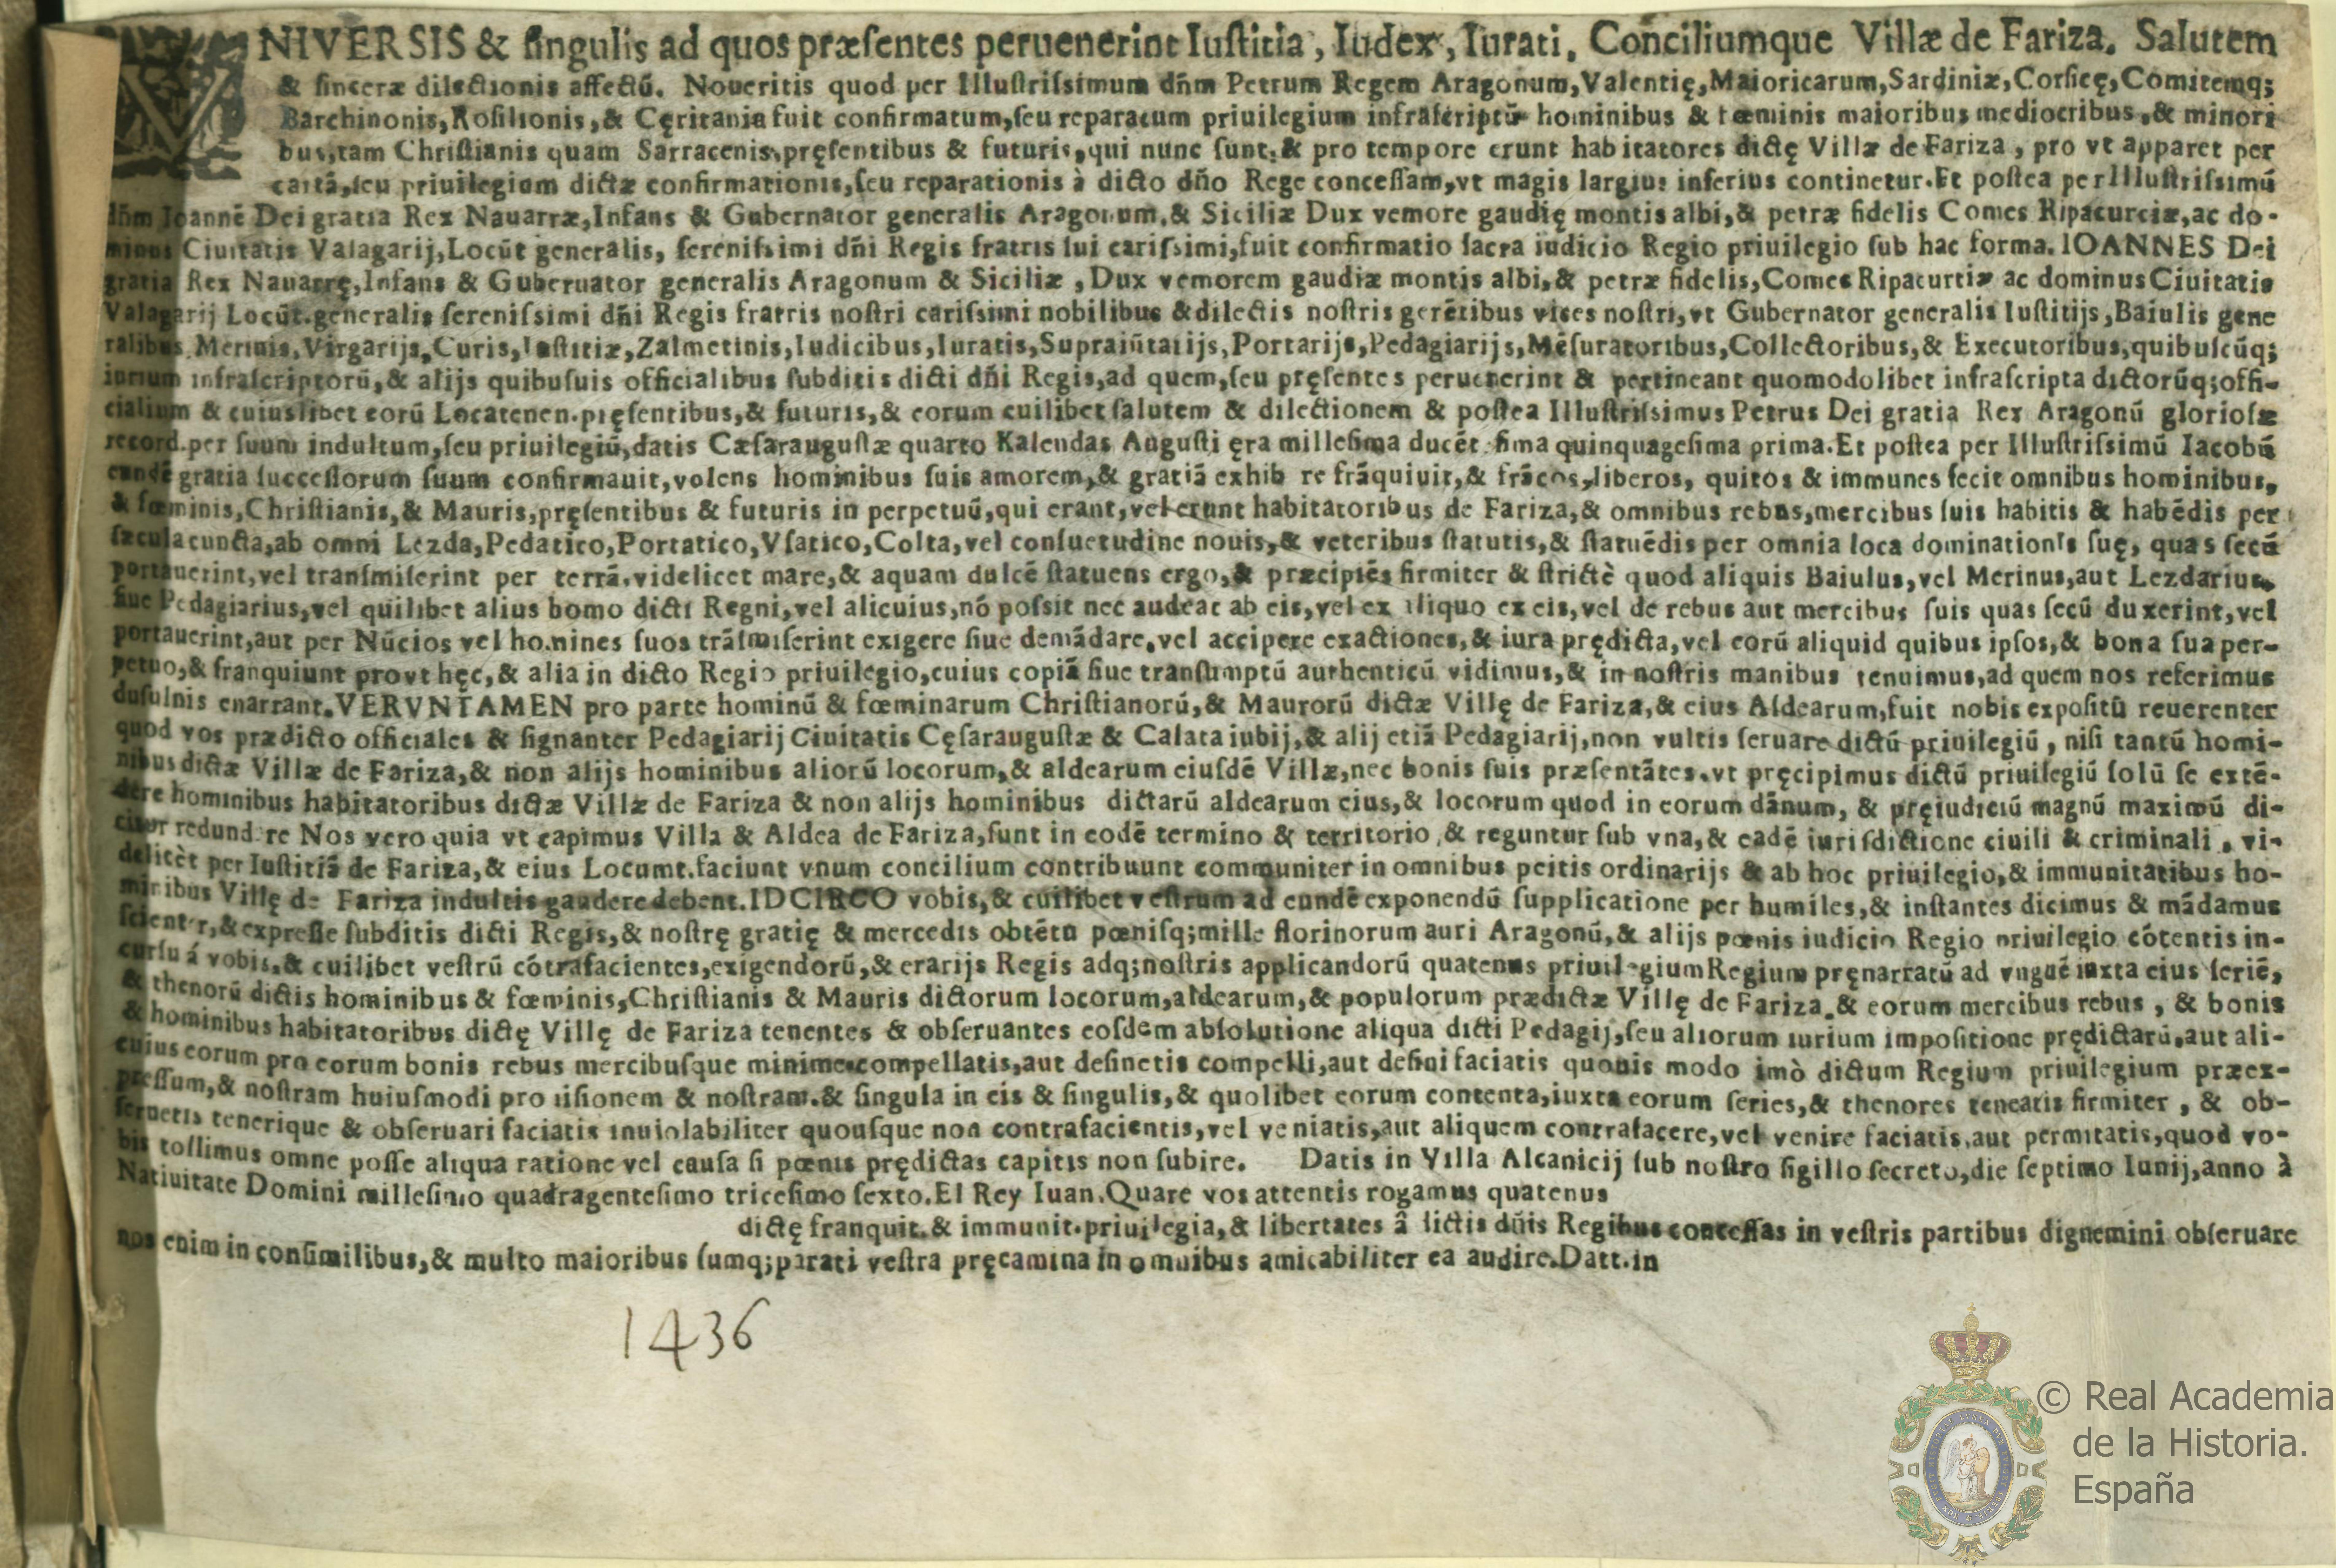 VNIVERSIS & ſingulis ad quos præſentes peruenerint Iuſtitia, Iudex, Iurati, Conciliumque Villæ de Fariza. Salutem
& ſinceræ dilectionis affectū. Noueritis quod per Illuſtriſsimum dn̄m Petrum Regem Aragonum, Valentię, Maioricarum, Sardiniæ, Corſicę, Comitemq;
Barchinonis, Roſilionis, & Cęritania fuit confirmatum, ſeu reparatum priuilegium infraſcriptū hominibus & fœminis maioribus mediocribus, & minori
bus, tam Chriſtianis quam Sarracenis, pręſentibus & futuris, qui nunc ſunt, & pro tempore erunt habitatores dictę Villæ de Fariza, pro vt apparet per
cartā, ſeu priuilegium dictæ confirmationis, ſeu reparationis à dicto dn̄o Rege conceſſam, vt magis largius inferius continetur. Et poſtea per Illuſtriſsimū
dn̄m Ioannē Dei gratia Rex Nauarræ, Infans & Gubernator generalis Aragonum, & Siciliæ Dux vemore gaudię montis albi, & petræ fidelis Comes Ripacurciæ, ac do-
minus Ciuitatis Valagarij, Locūt generalis, ſereniſsimi dn̄i Regis fratris ſui cariſsimi, fuit confirmatio ſacra iudicio Regio priuilegio ſub hac forma. IOANNES Dei
gratia Rex Nauarrę, Infans & Gubernator generalis Aragonum & Siciliæ, Dux vemorem gaudiæ montis albi, & petræ fidelis, Comes Ripacurtiæ ac dominus Ciuitatis
Valagarij Locūt. generalis ſereniſsimi dn̄i Regis fratris noſtri cariſsimi nobilibus & dilectis noſtris gerētibus vices noſtri, vt Gubernator generalis Iuſtitijs, Baiulis gene
ralibus, Merinis, Virgarijs, Curis, Iuſtitiæ, Zalmetinis, Iudicibus, Iuratis, Supraiūtatijs, Portarijs, Pedagiarijs, Mēſuratoribus, Collectoribus, & Executoribus, quibuſcūq;
iurium infraſcriptorū, & alijs quibuſuis officialibus ſubditis dicti dn̄i Regis, ad quem, ſeu pręſentes peruenerint & pertineant quomodolibet infraſcripta dictorūq; offi-
cialium & cuiuslibet eorū Locatenen. pręſentibus, & futuris, & eorum cuilibet ſalutem & dilectionem & poſtea Illuſtriſsimus Petrus Dei gratia Rex Aragonū glorioſæ
record. per ſuum indultum, ſeu priuilegiū, datis Cæſarauguſtæ quarto Kalendas Auguſti ęra milleſima ducēt ſima quinquageſima prima. Et poſtea per Illuſtriſsimū Iacobū
eandē gratia ſucceſſorum ſuum confirmauit, volens hominibus ſuis amorem, & gratiā exhib re frāquiuit, & frācos, liberos, quitos & immunes fecit omnibus hominibus,
& fœminis, Chriſtianis, & Mauris, pręſentibus & futuris in perpetuū, qui erant, vel erunt habitatoribus de Fariza, & omnibus rebus, mercibus ſuis habitis & habēdis per
ſæcula cuncta, ab omni Lezda, Pedatico, Portatico, Vſatico, Colta, vel conſuetudine nouis, & veteribus ſtatutis, & ſtatuēdis per omnia loca dominationis ſuę, quas ſecū
portauerint, vel tranſmiſerint per terrā, videlicet mare, & aquam dulcē ſtatuens ergo, & præcipiēs firmiter & ſtrictè quod aliquis Baiulus, vel Merinus, aut Lezdarius,
ſiue Pedagiarius, vel quilibet alius homo dicti Regni, vel alicuius, nō poſsit nec audeat ab eis, vel ex aliquo ex eis, vel de rebus aut mercibus ſuis quas ſecū duxerint, vel
portauerint, aut per Nūcios vel homines ſuos trāſmiſerint exigere ſiue demādare, vel accipere exactiones, & iura prędicta, vel eorū aliquid quibus ipſos, & bona ſua per-
petuo, & franquiunt provt hęc, & alia in dicto Regio priuilegio, cuius copiā ſiue tranſumptū authenticū vidimus, & in noſtris manibus tenuimus, ad quem nos referimus
duſulnis enarrant. VERVNTAMEN pro parte hominū & fœminarum Chriſtianorū, & Maurorū dictæ Villę de Fariza, & eius Aldearum, fuit nobis expoſitū reuerenter
quod vos prædicto officiales & ſignanter Pedagiarij Ciuitatis Cęſarauguſtæ & Calataiubij, & alij etiā Pedagiarij, non vultis ſeruare dictū priuilegiū, niſi tantū homi-
nibus dictæ Villæ de Fariza, & non alijs hominibus aliorū locorum, & aldearum eiuſdē Villæ, nec bonis ſuis præſentātes, vt pręcipimus dictū priuilegiū ſolū ſe extē-
dere hominibus habitatoribus dictæ Villæ de Fariza & non alijs hominibus dictarū aldearum eius, & locorum quod in eorum dānum, & pręiudiciū magnū maximū di-
citur redund re Nos vero quia vt capimus Villa & Aldea de Fariza, ſunt in eodē termino & territorio, & reguntur ſub vna, & eadē iuriſdictione ciuili & criminali, vi-
delicèt per Iuſtitiā de Fariza, & eius Locumt. faciunt vnum concilium contribuunt communiter in omnibus peitis ordinarijs & ab hoc priuilegio, & immunitatibus ho-
minibus Villę de Fariza indultis gaudere debent. IDCIRCO vobis, & cuilibet veſtrum ad eundē exponendū ſupplicatione per humiles, & inſtantes dicimus & mādamus
ſcienter, & expreſſe ſubditis dicti Regis, & noſtrę gratię & mercedis obtētu pœniſq; mille florinorum auri Aragonū, & alijs pœnis iudicio Regio priuilegio cōtentis in-
curſu á vobis, & cuilibet veſtrū cōtrafacientes, exigendorū, & erarijs Regis adq; noſtris applicandorū quatenus priuilegium Regium pręnarratū ad vnguē iuxta eius ſeriē,
& thenorū dictis hominibus & fœminis, Chriſtianis & Mauris dictorum locorum, aldearum, & populorum prædictæ Villę de Fariza, & eorum mercibus rebus, & bonis
& hominibus habitatoribus dictę Villę de Fariza tenentes & obſeruantes eoſdem abſolutione aliqua dicti Pedagij, ſeu aliorum iurium impoſitione prędictarū, aut ali-
cuius eorum pro eorum bonis rebus mercibuſque minime compellatis, aut deſinetis compelli, aut deſini faciatis quouis modo imò dictum Regium priuilegium præex-
preſſum, & noſtram huiuſmodi prouiſionem & noſtram, & ſingula in eis & ſingulis, & quolibet eorum contenta, iuxta eorum ſeries, & thenores teneatis firmiter, & ob-
ſeruetis tenerique & obſeruari faciatis inuiolabiliter quouſque non contrafacientis, vel veniatis, aut aliquem contrafacere, vel venire faciatis, aut permitatis, quod vo-
bis tollimus omne poſſe aliqua ratione vel cauſa ſi pœnis prędictas capitis non ſubire. Datis in Villa Alcanicij ſub noſtro ſigillo ſecreto, die ſeptimo Iunij, anno à
Natiuitate Domini milleſimo quadragenteſimo triceſimo ſexto. El Rey Iuan. Quare vos attentis rogamus quatenus
dictę franquit. & immunit. priuilegia, & libertates â dictis dn̄is Regibus conceſſas in veſtris partibus dignemini obſeruare
nos enim in conſimilibus, & multo maioribus ſumq; parati veſtra pręcamina in omnibus amicabiliter ea audire. Datt. in
1436
© Real Academia
de la Historia.
España